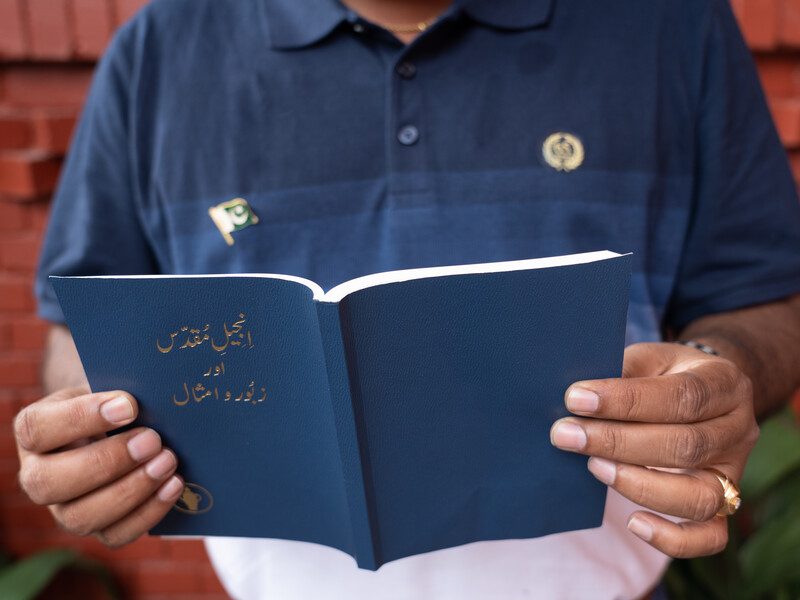 اِنجیلِ مُقدّس
اور
زبُور و امثال